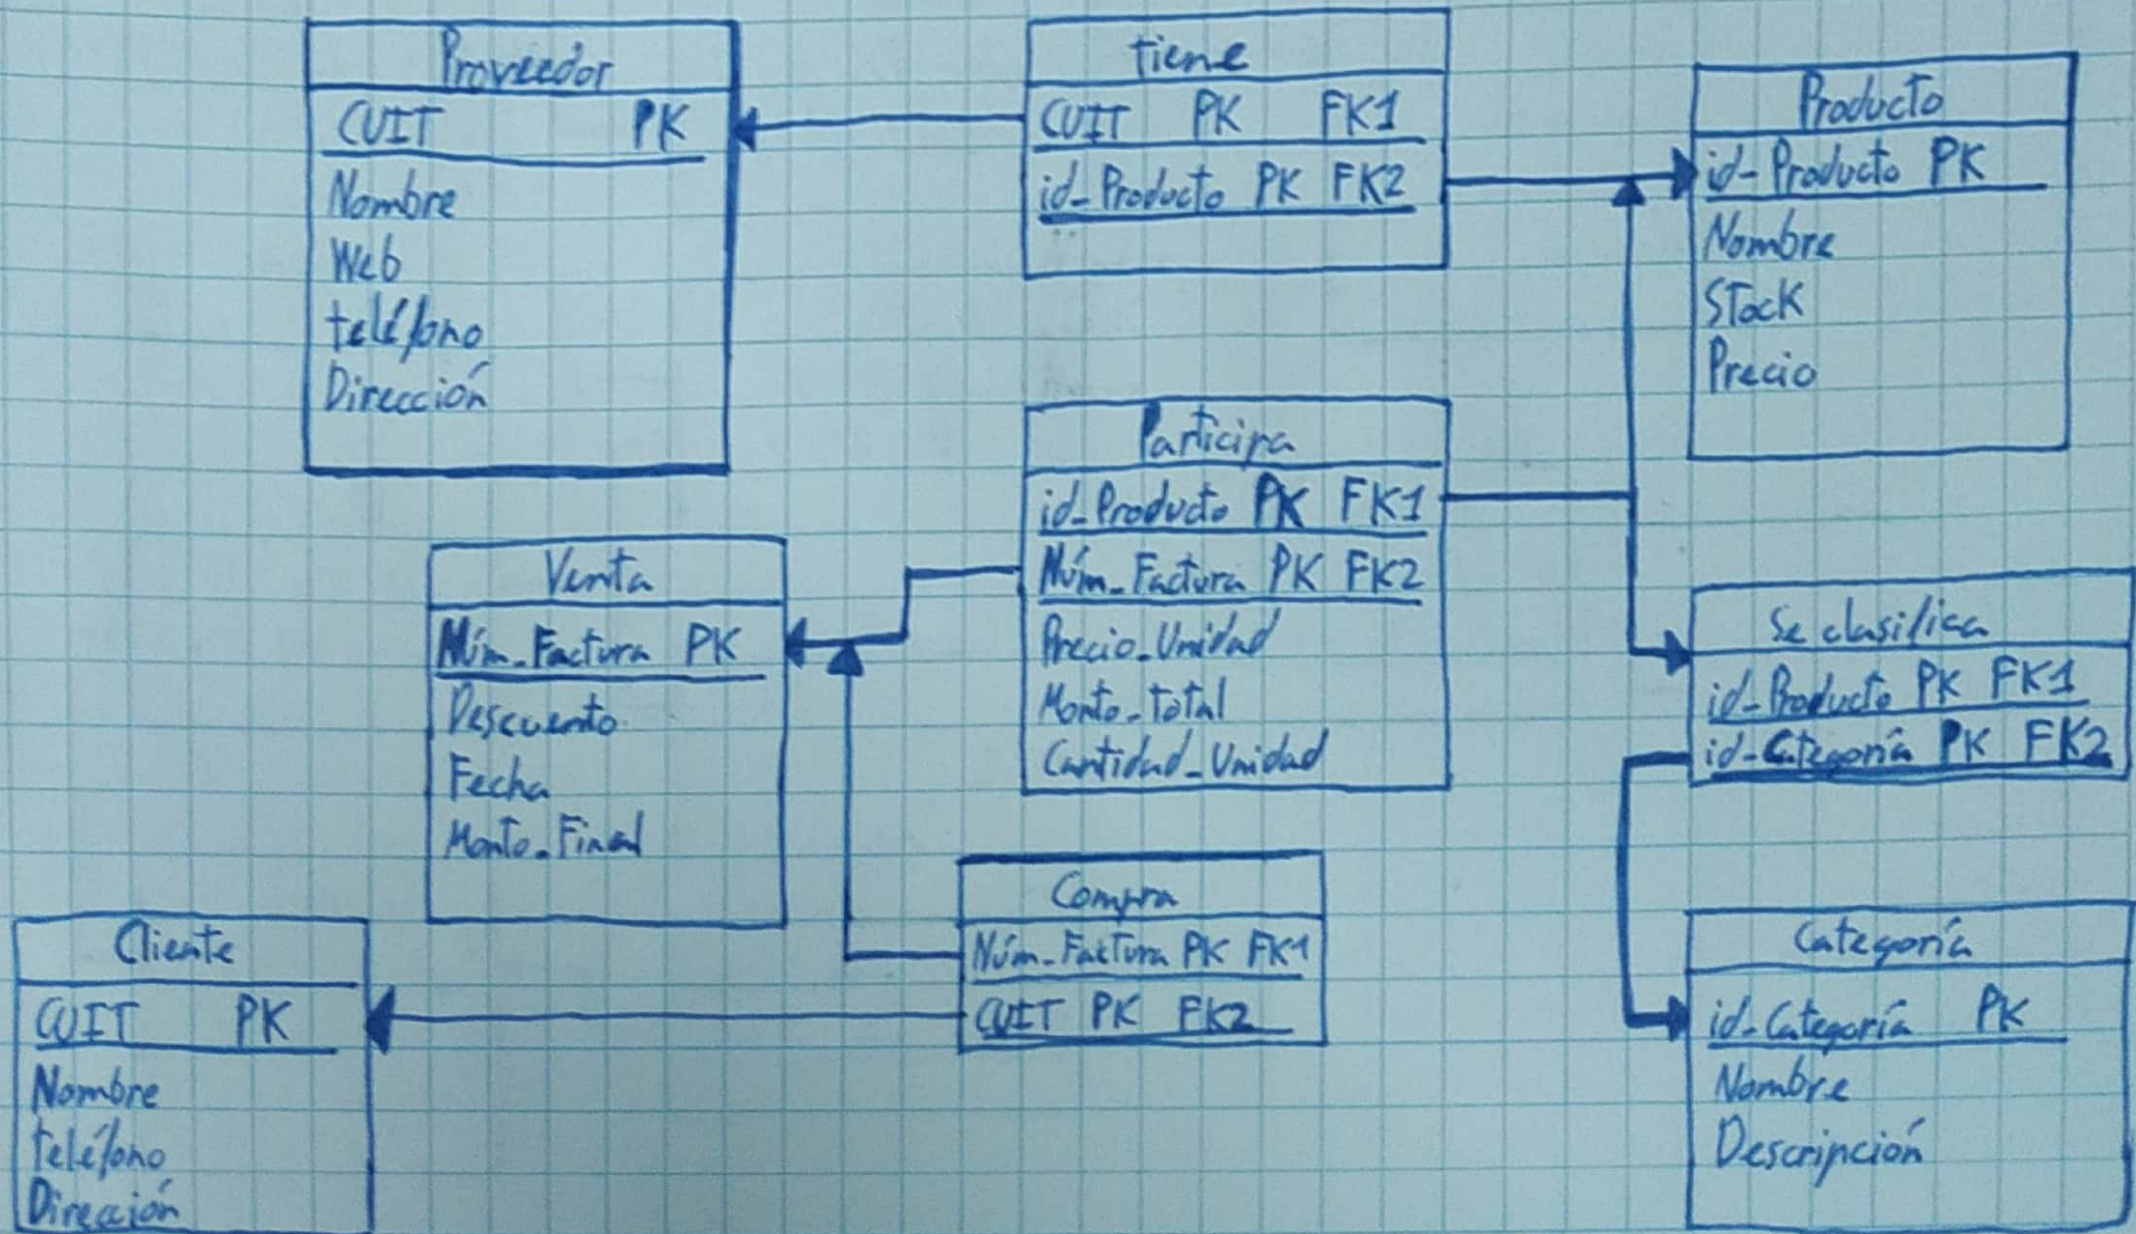 Proveedor
CUIT PK
Nombre
Web
teléfono
Dirección
tiene
CUIT PK FK1
id-Producto PK FK2
Producto
id-Producto PK
Nombre
Stock
Precio
Participa
id-Producto PK FK1
Núm-Factura PK FK2
Precio-Unidad
Monto-total
Cantidad-Unidad
Venta
Núm-Factura PK
Descuento
Fecha
Monto-Final
Se clasifica
id-Producto PK FK1
id-Categoría PK FK2
Compra
Núm-Factura PK FK1
CUIT PK FK2
Cliente
CUIT PK
Nombre
teléfono
Dirección
Categoría
id-Categoría PK
Nombre
Descripción